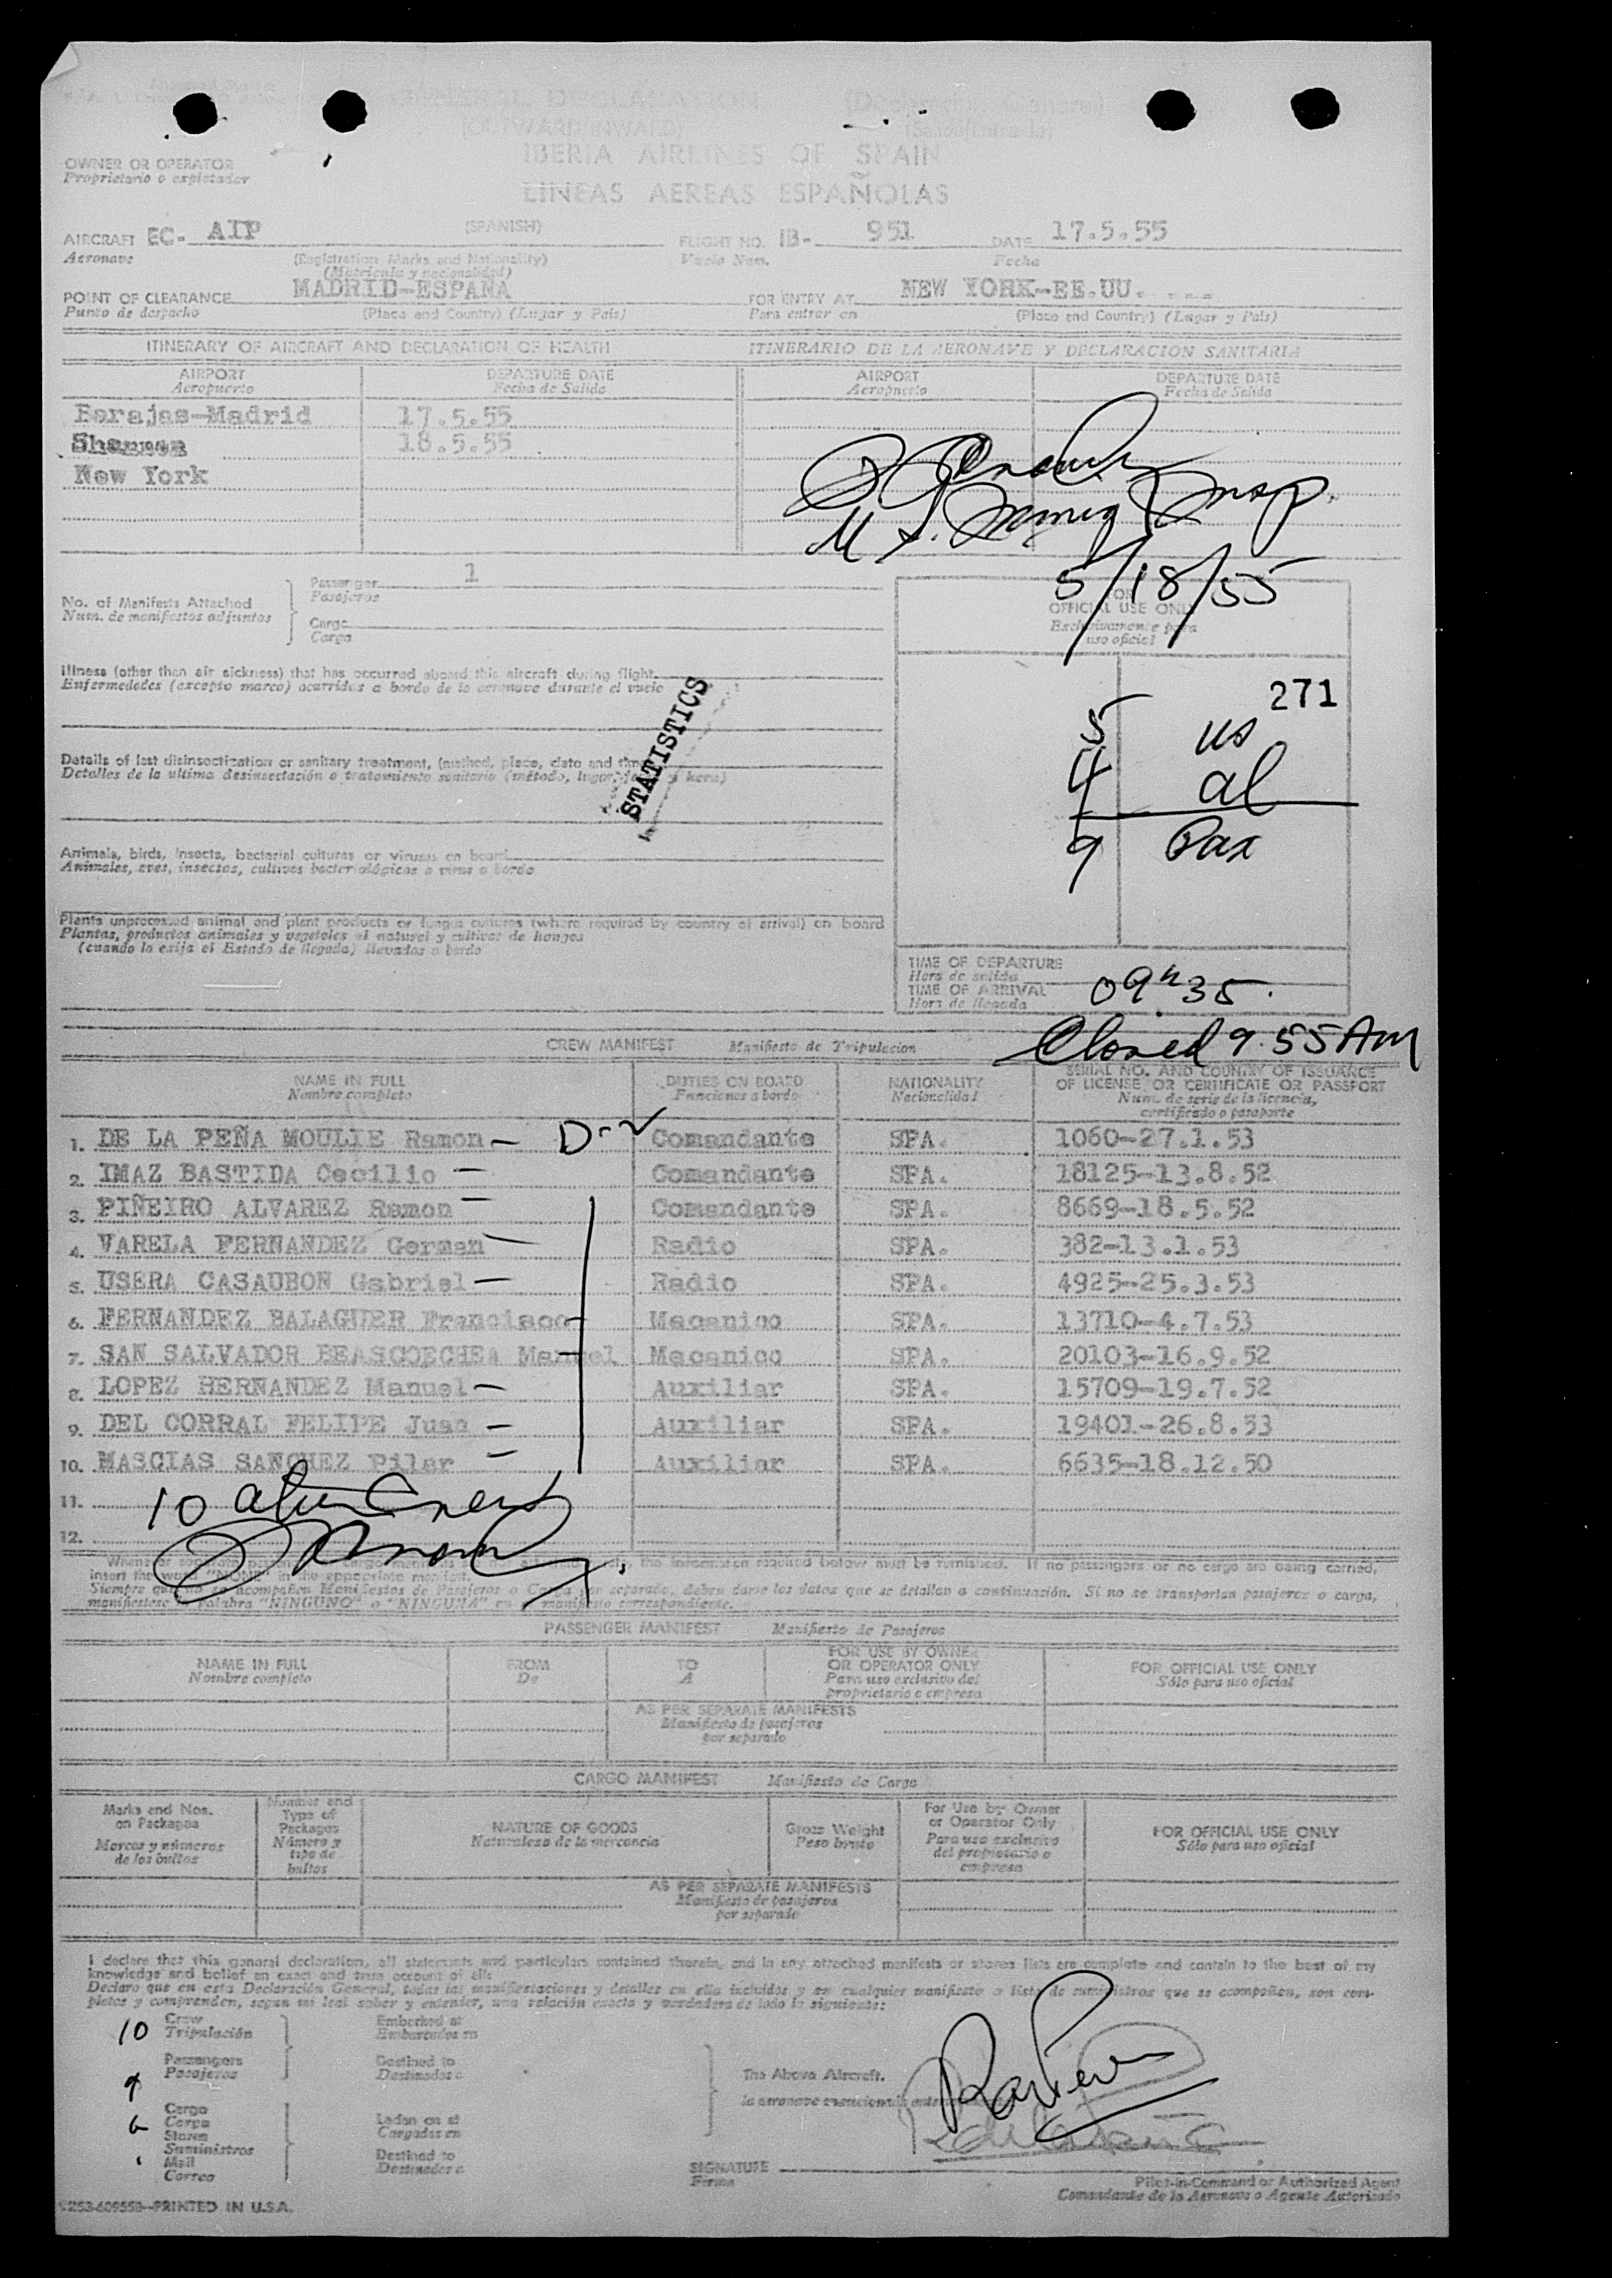 GENERAL DECLARATION
(OUTWARD/INWARD)
IBERIA AIRLINES OF SPAIN
OWNER OR OPERATOR
Propietario o explotador
LINEAS AEREAS ESPAÑOLAS
AIRCRAFT EC- AIP (SPANISH) FLIGHT NO. IB- 951 DATE 17.5.55
Aeronave (Registration Marks and Nationality) Vuelo Num. Fecha
(Matricula y nacionalidad)
POINT OF CLEARANCE MADRID-ESPAÑA FOR ENTRY AT NEW YORK-EE.UU.
Punto de despacho (Place and Country) (Lugar y Pais) Para entrar en (Place and Country) (Lugar y Pais)
ITINERARY OF AIRCRAFT AND DECLARATION OF HEALTH ITINERARIO DE LA AERONAVE Y DECLARACION SANITARIA
AIRPORT DEPARTURE DATE AIRPORT DEPARTURE DATE
Aeropuerto Fecha de Salida Aeropuerto Fecha de Salida
Barajas-Madrid 17.5.55
Shannon 18.5.55
New York
U.S. Immig Insp.
5/18/55
No. of Manifests Attached Passenger 1
Num. de manifiestos adjuntos Pasajeros
Cargo
Carga
FOR
OFFICIAL USE ONLY
Exclusivamente para
uso oficial
Illness (other than air sickness) that has occurred aboard this aircraft during flight
Enfermedades (excepto mareo) ocurridas a bordo de la aeronave durante el vuelo
STATISTICS
271
5 us
4 al
9 Pax
Details of last disinsectization or sanitary treatment, (method, place, date and time)
Detalles de la ultima desinsectación o tratamiento sanitario (método, lugar, y hora)
Animals, birds, insects, bacterial cultures or viruses on board
Animales, aves, insectos, cultivos bacteriológicos o virus a bordo
Plants unprocessed animal and plant products or fungus cultures (where required by country of arrival) on board
Plantas, productos animales y vegetales al natural y cultivos de hongos
(cuando lo exija el Estado de llegada) llevados a bordo
TIME OF DEPARTURE
Hora de salida
TIME OF ARRIVAL 09h35.
Hora de llegada
Closed 9.55 AM
CREW MANIFEST Manifiesto de Tripulacion
NAME IN FULL DUTIES ON BOARD NATIONALITY SERIAL NO. AND COUNTRY OF ISSUANCE OF LICENSE OR CERTIFICATE OR PASSPORT
Nombre completo Funciones a bordo Nacionalidad Num. de serie de la licencia, certificado o pasaporte
1. DE LA PEÑA MOULIE Ramon Comandante SPA. 1060-27.1.53
2. IMAZ BASTIDA Cecilio Comandante SPA. 18125-13.8.52
3. PIÑEIRO ALVAREZ Ramon Comandante SPA. 8669-18.5.52
4. VARELA FERNANDEZ German Radio SPA. 382-13.1.53
5. USERA CASAUBON Gabriel Radio SPA. 4925-25.3.53
6. FERNANDEZ BALAGUER Francisco Macanico SPA. 13710-4.7.53
7. SAN SALVADOR BEASCOECHEA Manuel Macanico SPA. 20103-16.9.52
8. LOPEZ HERNANDEZ Manuel Auxiliar SPA. 15709-19.7.52
9. DEL CORRAL FELIPE Juan Auxiliar SPA. 19401-26.8.53
10. MASCIAS SANCHEZ Pilar Auxiliar SPA. 6635-18.12.50
11.
10 alien crew
12.
the information required below must be furnished. If no passengers or no cargo are being carried,
insert the word "NONE" in the appropriate manifest.
Siempre que no se acompañen Manifiestos de Pasajeros o Carga por separado, deben darse los datos que se detallan a continuación. Si no se transportan pasajeros o carga,
manifiestese palabra "NINGUNO" o "NINGUNA" en manifiesto correspondiente.
PASSENGER MANIFEST Manifiesto de Pasajeros
NAME IN FULL FROM TO FOR USE BY OWNER OR OPERATOR ONLY FOR OFFICIAL USE ONLY
Nombre completo De A Para uso exclusivo del propietario o empresa Sólo para uso oficial
AS PER SEPARATE MANIFESTS
Manifiesto de pasajeros
por separado
CARGO MANIFEST Manifiesto de Carga
Marks and Nos. on Packages Number and Type of Packages NATURE OF GOODS Gross Weight For Use by Owner or Operator Only FOR OFFICIAL USE ONLY
Marcas y números de los bultos Número y tipo de bultos Naturaleza de la mercancia Peso bruto Para uso exclusivo del propietario o empresa Sólo para uso oficial
AS PER SEPARATE MANIFESTS
Manifiesto de pasajeros
por separado
I declare that this general declaration, all statements and particulars contained therein, and in any attached manifests or stores lists are complete and contain to the best of my
knowledge and belief an exact and true account of all:
Declaro que en esta Declaración General, todas las manifestaciones y detalles en ella incluidos y en cualquier manifiesto o lista de suministros que se acompañen, son com-
pletos y comprenden, segun mi leal saber y entender, una relación exacta y verdadera de todo lo siguiente:
10 Crew Embarked at
Tripulación Embarcados en
Passengers Destined to The Above Aircraft.
9 Pasajeros Destinados a
Cargo
Carga Laden on at
Stores Cargados en
Suministros
Mail Destined to
Correo Destinados a
SIGNATURE
Firma
Pilot-in-Command or Authorized Agent
Comandante de la Aeronave o Agente Autorizado
PRINTED IN U.S.A.